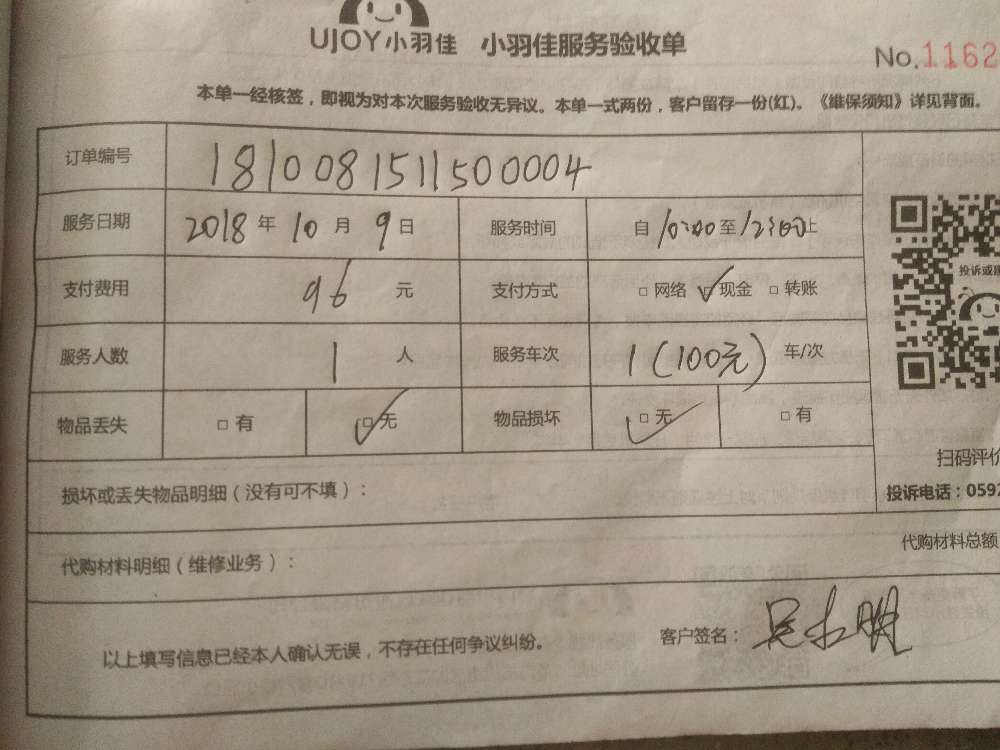 UJOY小羽佳 小羽佳服务验收单
No.1162
本单一经核签，即视为对本次服务验收无异议。本单一式两份，客户留存一份(红)。《维保须知》详见背面。
订单编号 181008151150004
服务日期 2018 年 10 月 9 日 服务时间 自 10:00 至 12:00 止
支付费用 96 元 支付方式 □ 网络 □ 现金 □ 转账
投诉或
服务人数 1 人 服务车次 1（100元） 车/次
物品丢失 □ 有 □ 无 物品损坏 □ 无 □ 有
扫码评价
损坏或丢失物品明细（没有可不填）：
投诉电话：0592
代购材料明细（维修业务）：
代购材料总额
以上填写信息已经本人确认无误，不存在任何争议纠纷。
客户签名：